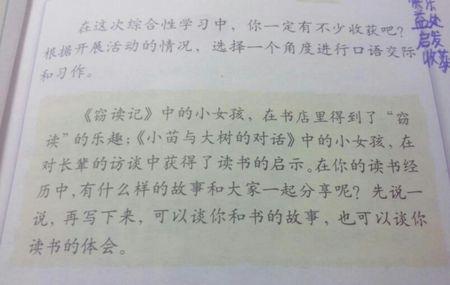 在这次综合性学习中，你一定有不少收获吧？
根据开展活动的情况，选择一个角度进行口语交际
和习作。
《窃读记》中的小女孩，在书店里得到了“窃
读”的乐趣；《小苗与大树的对话》中的小女孩，在
对长辈的访谈中获得了读书的启示。在你的读书经
历中，有什么样的故事和大家一起分享呢？先说一
说，再写下来，可以谈你和书的故事，也可以谈你
读书的体会。
益处
启发
收获